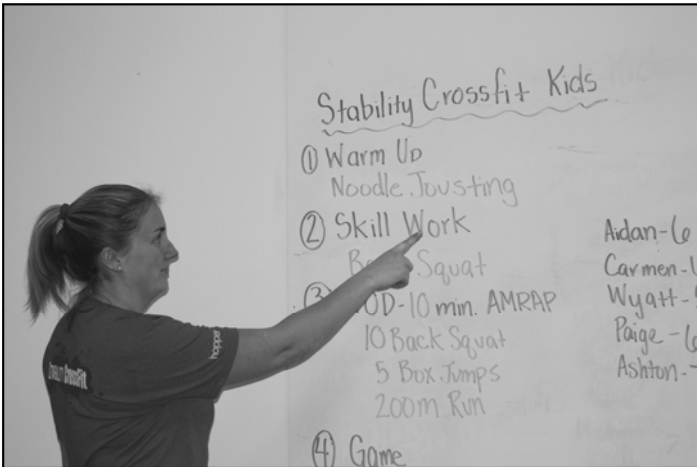 Stability Crossfit Kids
① Warm Up
Noodle Jousting
② Skill Work
Squat
③ OD-10 min. AMRAP
10 Back Squat
5 Box Jumps
200m Run
④ Game
Aidan-6
Carmen-
Wyatt-
Paige-6
Ashton-
STABILITY CROSSFIT
hopper